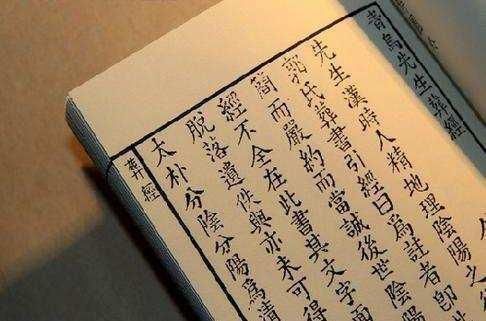 青烏先生葬經
先生漢時人精地理陰陽之
郭氏葬書引經曰爲註者即
簡而嚴約而當誠後世陰陽
經不全在此書其文字面
脫落遺佚與亦未可得
太朴分陰分陽爲清
葬經